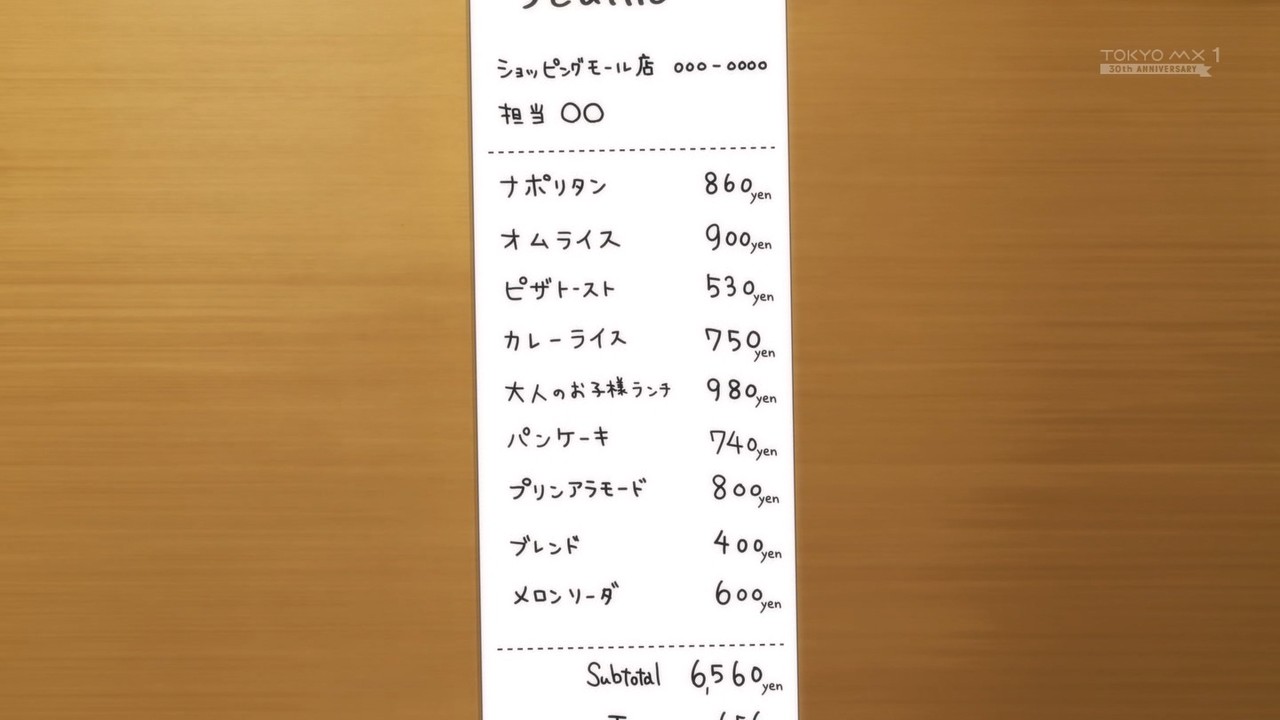 TOKYO MX 1
30th ANNIVERSARY
ショッピングモール店 000-0000
担当 〇〇
ナポリタン 860yen
オムライス 900yen
ピザトースト 530yen
カレーライス 750yen
大人のお子様ランチ 980yen
パンケーキ 740yen
プリンアラモード 800yen
ブレンド 400yen
メロンソーダ 600yen
Subtotal 6,560yen